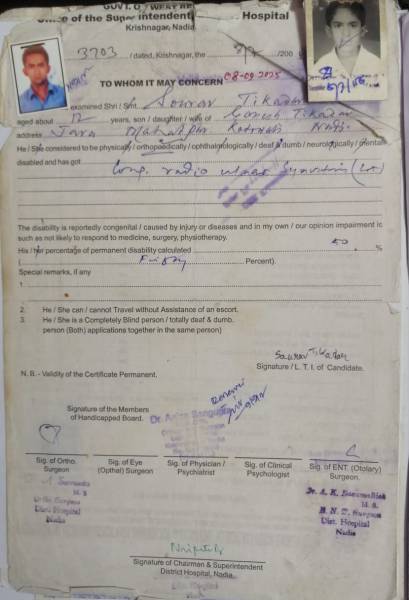 GOVT. OF WEST BE
Office of the Superintendent, Hospital
Krishnagar, Nadia
3703 / dated, Krishnagar, the 200
TO WHOM IT MAY CONCERN 08-09-2025
examined Shri / Smt. Sourav Tikadar
aged about 12 years, son / daughter / wife of Ganesh Tikadar
address
He / She considered to be physically / orthopaedically / ophthalmologically / deaf & dumb / neurologically / mentally
disabled and has got Cong. radio ulnar Synostosis (Lt)
The disability is reportedly congenital / caused by injury or diseases and in my own / our opinion impairment is
such as not likely to respond to medicine, surgery, physiotherapy.
His / her percentage of permanent disability calculated 50 %
( Fifty Percent).
Special remarks, if any
1
2. He / She can / cannot Travel without Assistance of an escort.
3. He / She is a Completely Blind person / totally deaf & dumb.
person (Both) applications together in the same person)
Sourav Tikadar
Signature / L. T. I. of Candidate.
N. B. - Validity of the Certificate Permanent.
Signature of the Members
of Handicapped Board.
Sig. of Ortho. Surgeon
Sig. of Eye (Opthal) Surgeon
Sig. of Physician / Psychiatrist
Sig. of Clinical Psychologist
Sig. of ENT. (Otolary) Surgeon.
M. S
Ortho Surgeon
Dist Hospital
Nadia
M. S.
E. N. T. Surgeon
Dist. Hospital
Nadia
Signature of Chairman & Superintendent
District Hospital, Nadia.